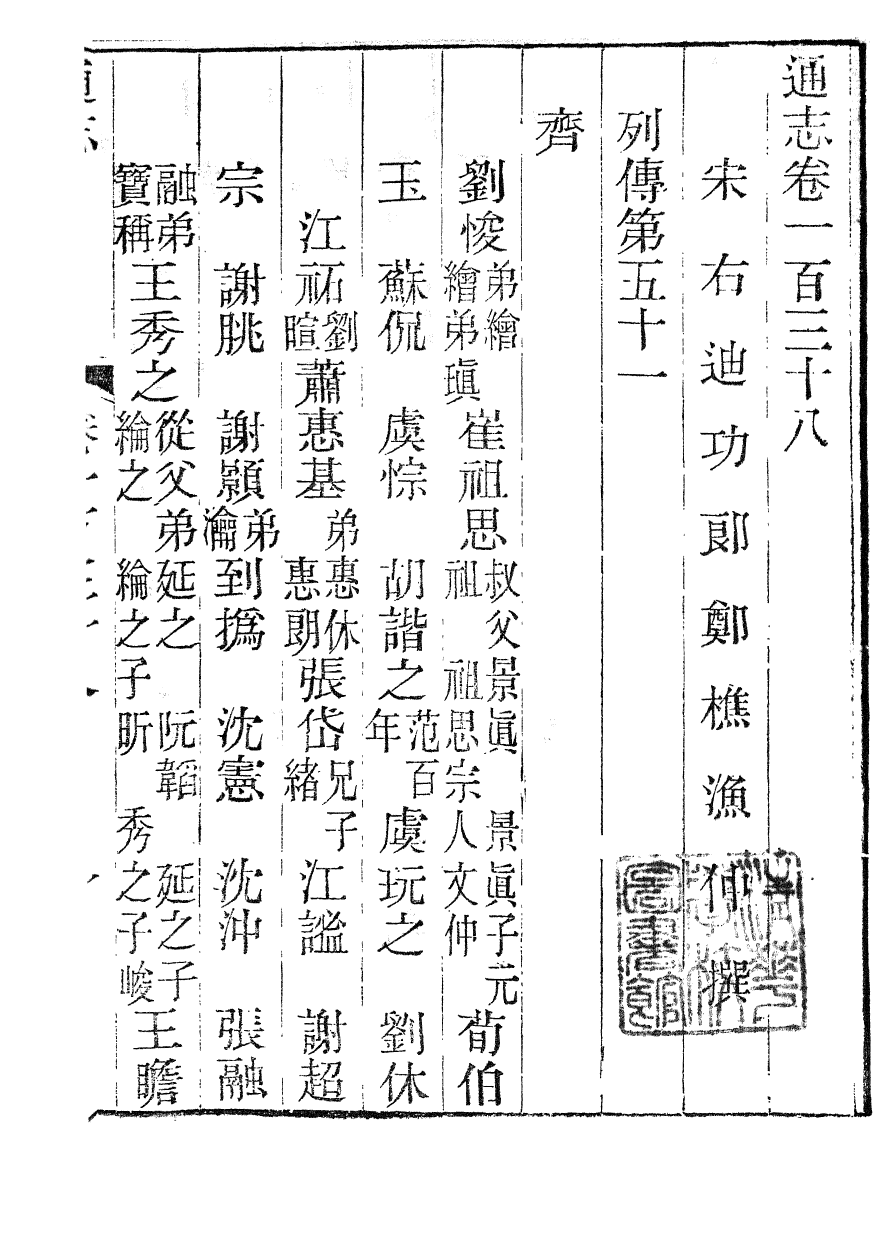 通志卷一百三十八
宋右迪功郎鄭樵漁仲撰
列傳第五十一
齊
劉悛 弟繪 繪弟瑱 崔祖思 叔父景眞 景眞子元祖 祖思宗人文仲 荀伯
玉 蘇侃 虞悰 胡諧之 范百年 虞玩之 劉休
江祏 劉暄 蕭惠基 弟惠休 惠朗 張岱 兄子緒 江謐 謝超
宗 謝朓 謝顥 弟瀹 到撝 沈憲 沈沖 張融
融弟寶稱 王秀之 從父弟延之 阮韜 延之子綸之 綸之子昕 秀之子峻 王瞻
通志 卷一百三十八 一